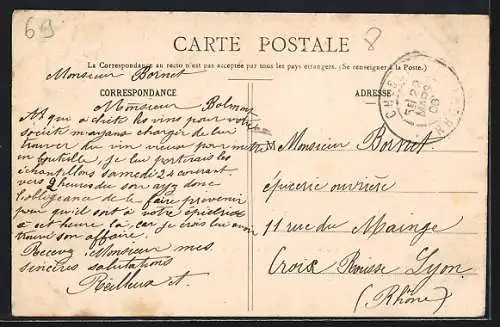 69
8
CARTE POSTALE
La Correspondance au recto n'est pas acceptée par tous les pays étrangers. (Se renseigner à la Poste.)
CORRESPONDANCE
ADRESSE
Monsieur Bornet
Monsieur
qui a les vins pour votre
société m'ayant chargé de lui
trouver du vin vieux pour mettre
en bouteille, je lui porterais les
échantillons samedi 24 courant
vers 2 heures du soir ayez donc
l'obligeance de le faire prévenir
pour qu'il soit à votre
à cet heure là, car je crois lui avoir
trouvé son affaire.
Recevez Monsieur mes
sincères salutations
M
Monsieur Bornet
épicerie ouvrière
11 rue du Mainge
Croix Rousse Lyon
(Rhône)
MARS